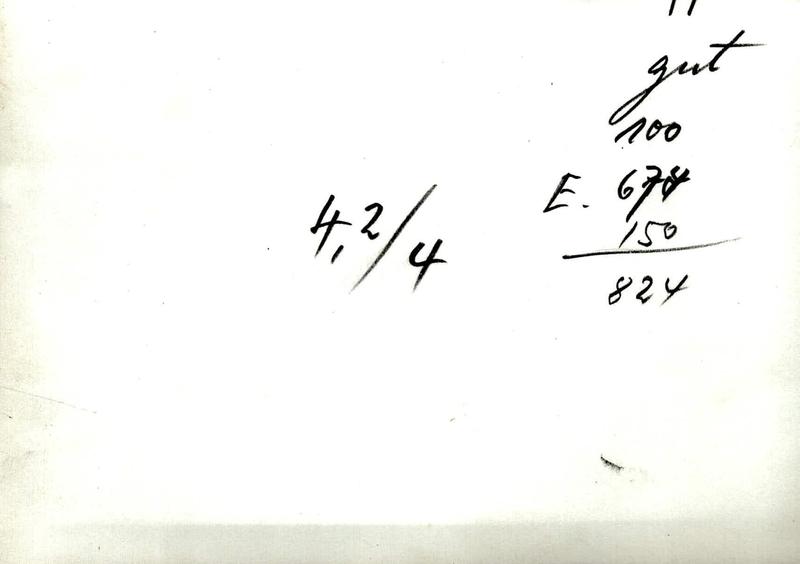 gut
100
E. 674
150
824
4,2/4